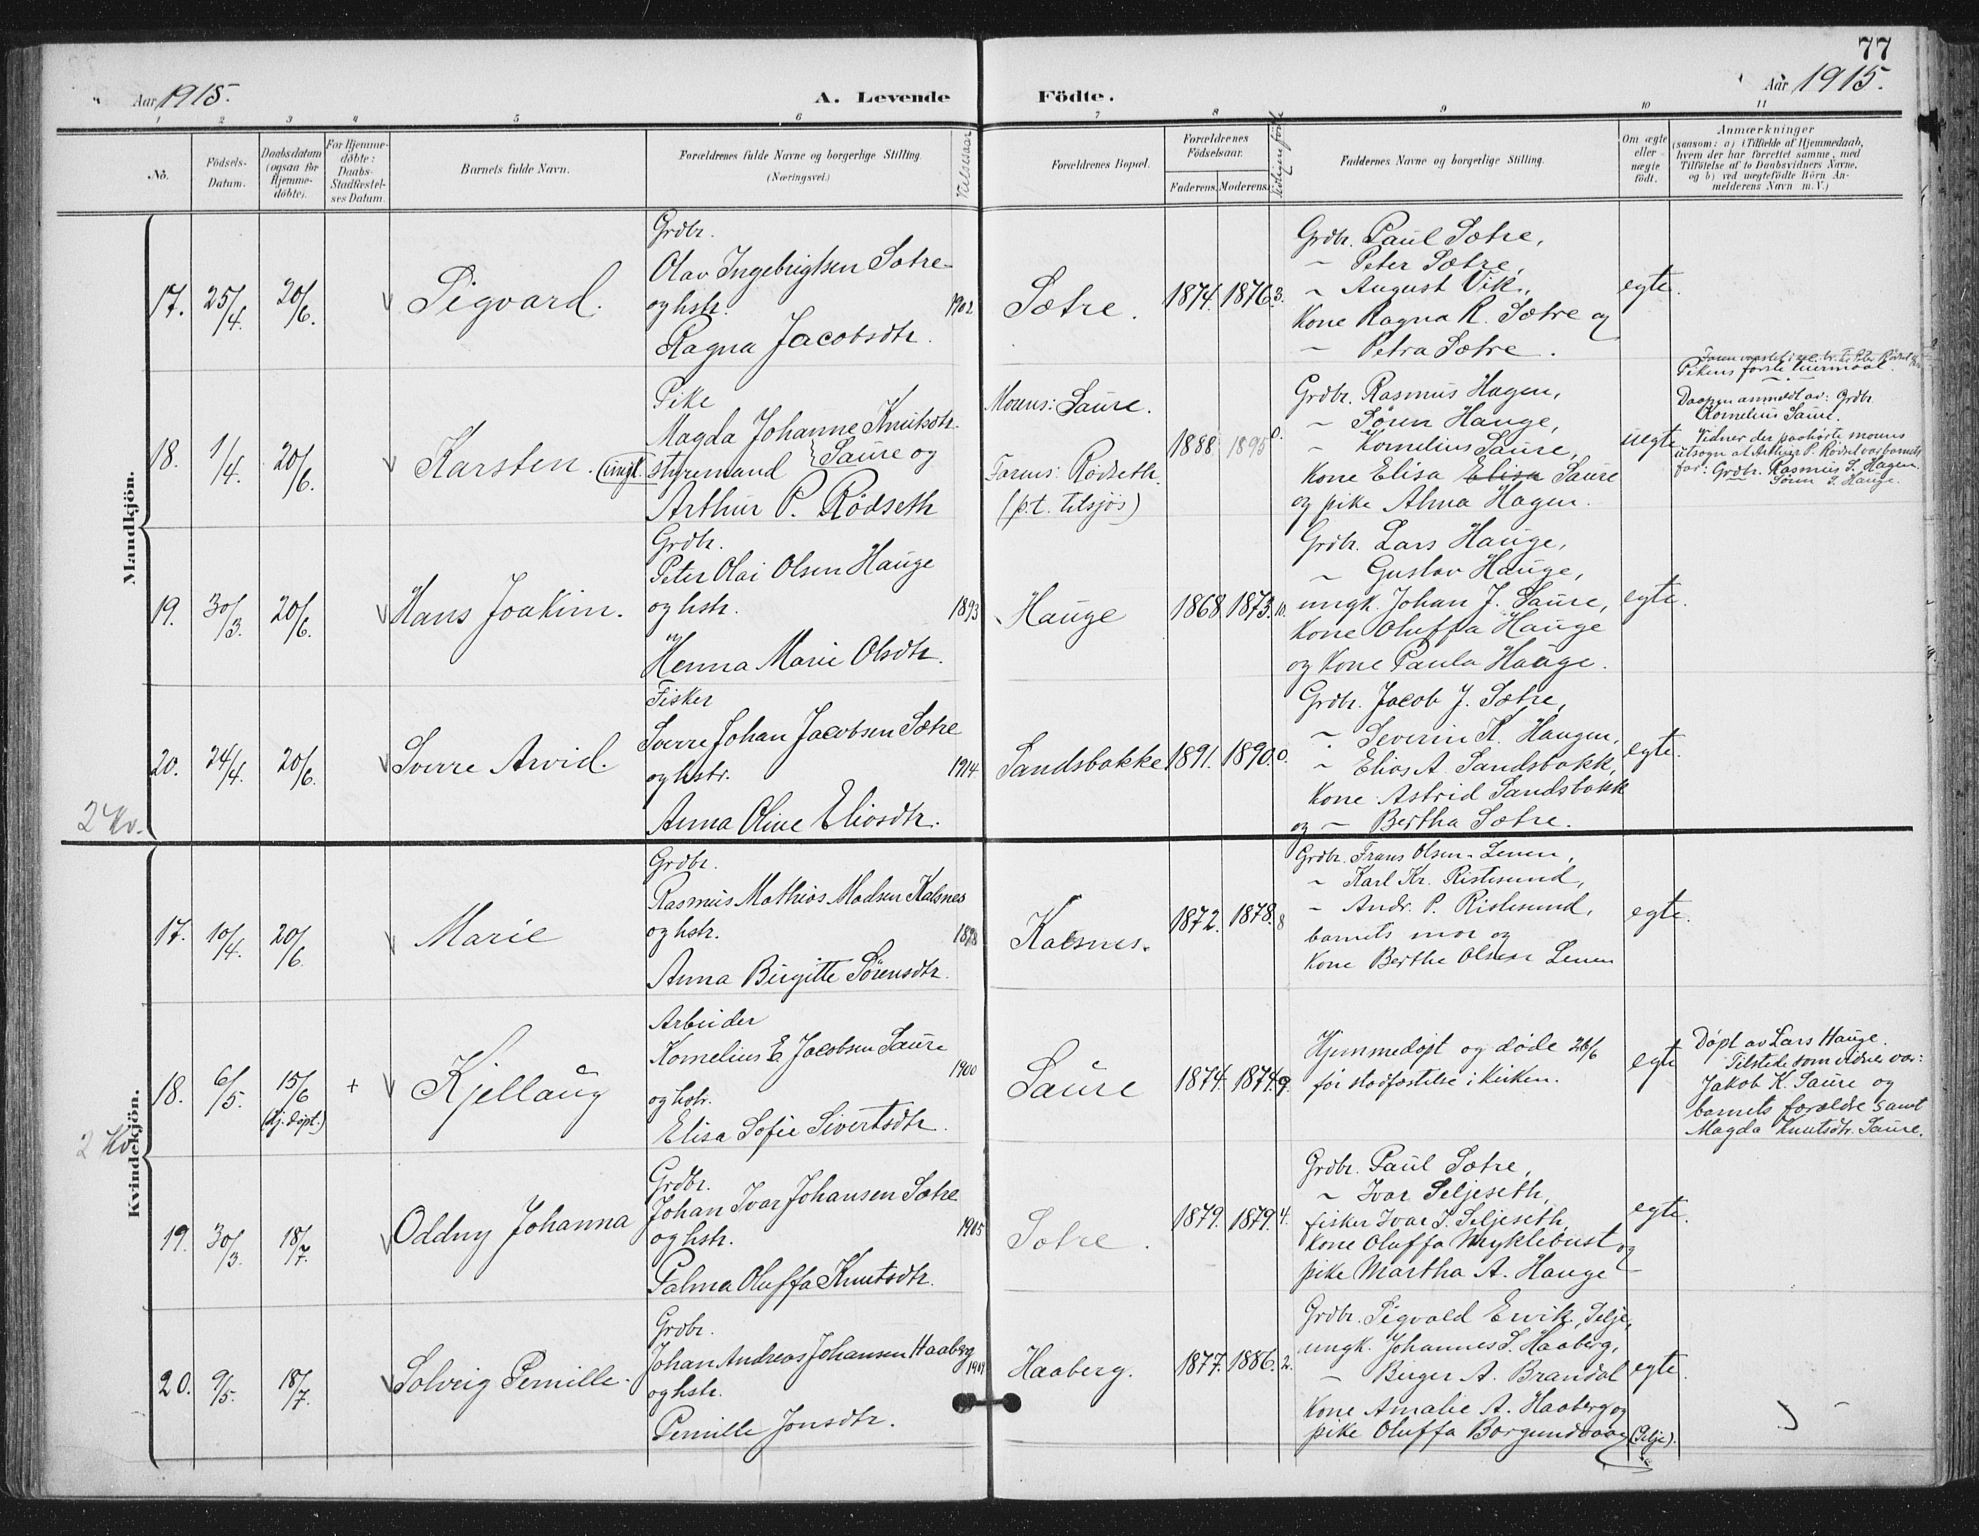 77
Aar 1915.
A. Levende Födte.
Aar 1915.
1 2 3 4 5 6 7 8 9 10 11
No.
Födsels-
Datum.
Daabsdatum
(ogsaa for
Hjemme-
döbte).
For Hjemme-
døbte:
Daabs-
Stadfæstel-
ses Datum.
Barnets fulde Navn.
Forældrenes fulde Navne og borgerlige Stilling.
(Næringsvei.)
Vielsesaar
Forældrenes Bopæl.
Forældrenes
Födselsaar.
Faderens. Moderens.
Faddernes Navne og borgerlige Stilling.
Om ægte
eller
uægte
födt.
Anmærkninger
(saasom: a) i Tilfælde af Hjemmedaab,
hvem der har forrettet samme, med
Tilföielse af to Daabsvidners Navne,
og b) ved uægtefödte Börn An-
melderens Navn m. V.)
Mandkjön.
17. 25/4. 20/6. Sigvard.
Grdbr.
Olav Ingebrigtsen Sætre
og hstr.
Ragna Jacobsdtr.
1902
Sætre.
1874. 1876. 3.
Grdbr. Paul Sætre,
~ Peter Sætre,
~ August Vik.,
Kone Ragna R. Sætre og
~ Petra Sætre.
egte.
18. 1/4. 20/6. Karsten. (uegt.)
Pike
Magda Johanne Knutsdtr.
Saure og
styrmand
Arthur P. Rödseth
Moens: Saure.
Farens: Rödseth.
(p.t. tilsjös)
1888. 1895 0.
Grdbr. Rasmus Hagen,
~ Søren Hauge,
~ Kornelius Saure,
Kone Elisa Elisa Saure
og pike Alma Hagen.
uegte
Pikens første leiermaal.
Daapen anmeldt av: Grdbr.
Kornelius Saure.
Vidner der paahørte morens
utsagn at Arthur P. Rödset var barnets
far: Grdbr. Rasmus S. Hagen.
Søren S. Hauge.
19. 30/3. 20/6. Hans Joakim.
Grdbr.
Peter Olai Olsen Hauge
og hstr.
Henna Marie Olsdtr.
1893
Hauge
1868. 1873. 10.
Grdbr. Lars Hauge,
~ Gustav Hauge,
ungk. Johan J. Saure,
Kone Oluffa Hauge
og Kone Paula Hauge.
egte.
20. 24/4. 20/6. Sverre Arvid.
Fisker
Sverre Johan Jacobsen Sætre
og hstr.
Anna Oline Eliasdtr.
1914
Sandsbakke
1891. 1890. 0.
Grdbr. Jacob J. Sætre,
~ Severin K. Haugen,
~ Elias A. Sandsbakk,
Kone Astrid Sandsbakk
og ~ Bertha Sætre.
egte.
2 Kv.
Kvindekjön.
17. 10/4. 20/6. Marie
Grdbr.
Rasmus Mathias Madsen Kalsnes
og hstr.
Anna Birgitte Sørensdtr.
1898
Kalsnes.
1872. 1878. 8
Grdbr. Frans Olsen Lenen,
~ Karl Kr. Ristesund,
~ Andr. P. Ristesund,
barnets mor og
Kone Berthe Olsen Lenen
egte.
18. 6/5. 15/6 (hj. døpt.) + Kjellaug
Arbeider
Kornelius E. Jacobsen Saure
og hstr.
Elisa Sofie Sivertsdtr.
1900
Saure
1874. 1874. 9.
Hjemmedøpt og døde 26/6
før stadfæstelse i kirken.
egte
Døpt av Lars Hauge.
Tilstede som vidner var:
Jakob K. Saure og
barnets forældre samt
Magda Knutsdtr. Saure.
2 Kv.
19. 30/3. 18/7. Oddny Johanna
Grdbr.
Johan Ivar Johansen Sætre
og hstr.
Palma Oluffa Knutsdtr.
1905
Sætre.
1879. 1879. 4.
Grdbr. Paul Sætre,
~ Ivar Seljeseth,
fisker Ivar J. Seljeseth,
Kone Oluffa Myklebust og
pike Martha A. Hauge
egte.
20. 9/5. 18/7. Solveig Pernille.
Grdbr.
Johan Andreas Johansen Haaberg
og hstr.
Pernille Jonsdtr.
Haaberg.
1877. 1886. 2.
Grdbr. Sigvald Ervik, Selje,
ungk. Johannes S. Haaberg,
~ Birger A. Brandal
Kone Amalie A. Haaberg og
pike Oluffa Borgundvaag (Selje).
egte.